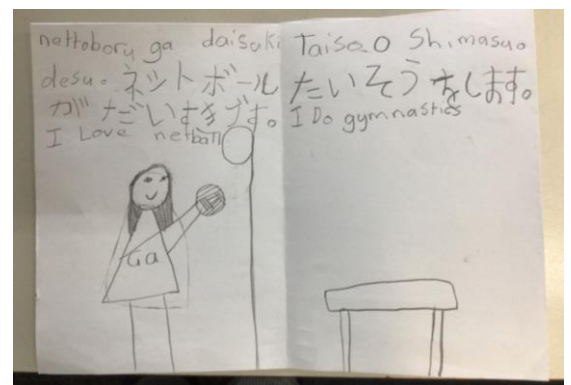 nettoboru ga daisuki
desu。ネットボール
がだいすきです。
I Love netball
Ga
Taiso O Shimasu。
たいそうをします。
I Do gymnastics